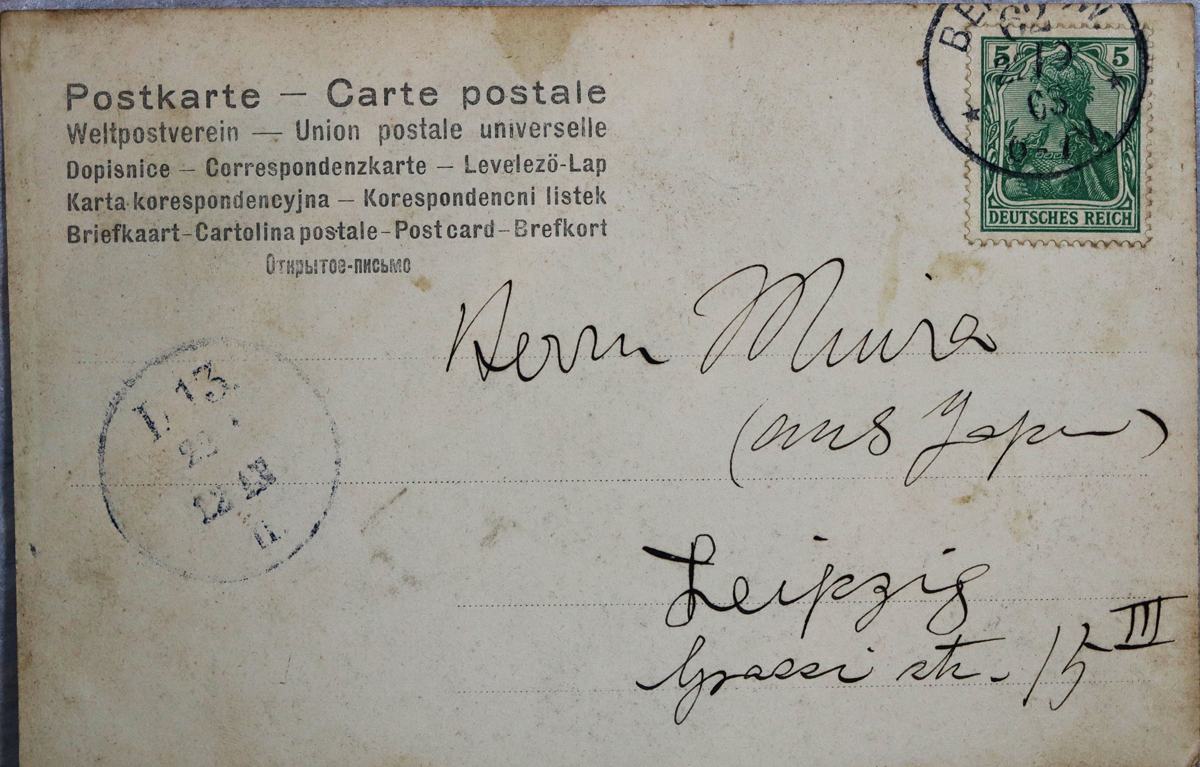 Postkarte — Carte postale
Weltpostverein — Union postale universelle
Dopisnice — Correspondenzkarte — Levelezö-Lap
Karta korespondencyjna — Korespondencni listek
Briefkaart-Cartolina postale-Post card-Brefkort
Открытое-письмо
5 5
DEUTSCHES REICH
Herrn Miura
(aus Japan)
L 13.
Leipzig
Grassi str. 15 III